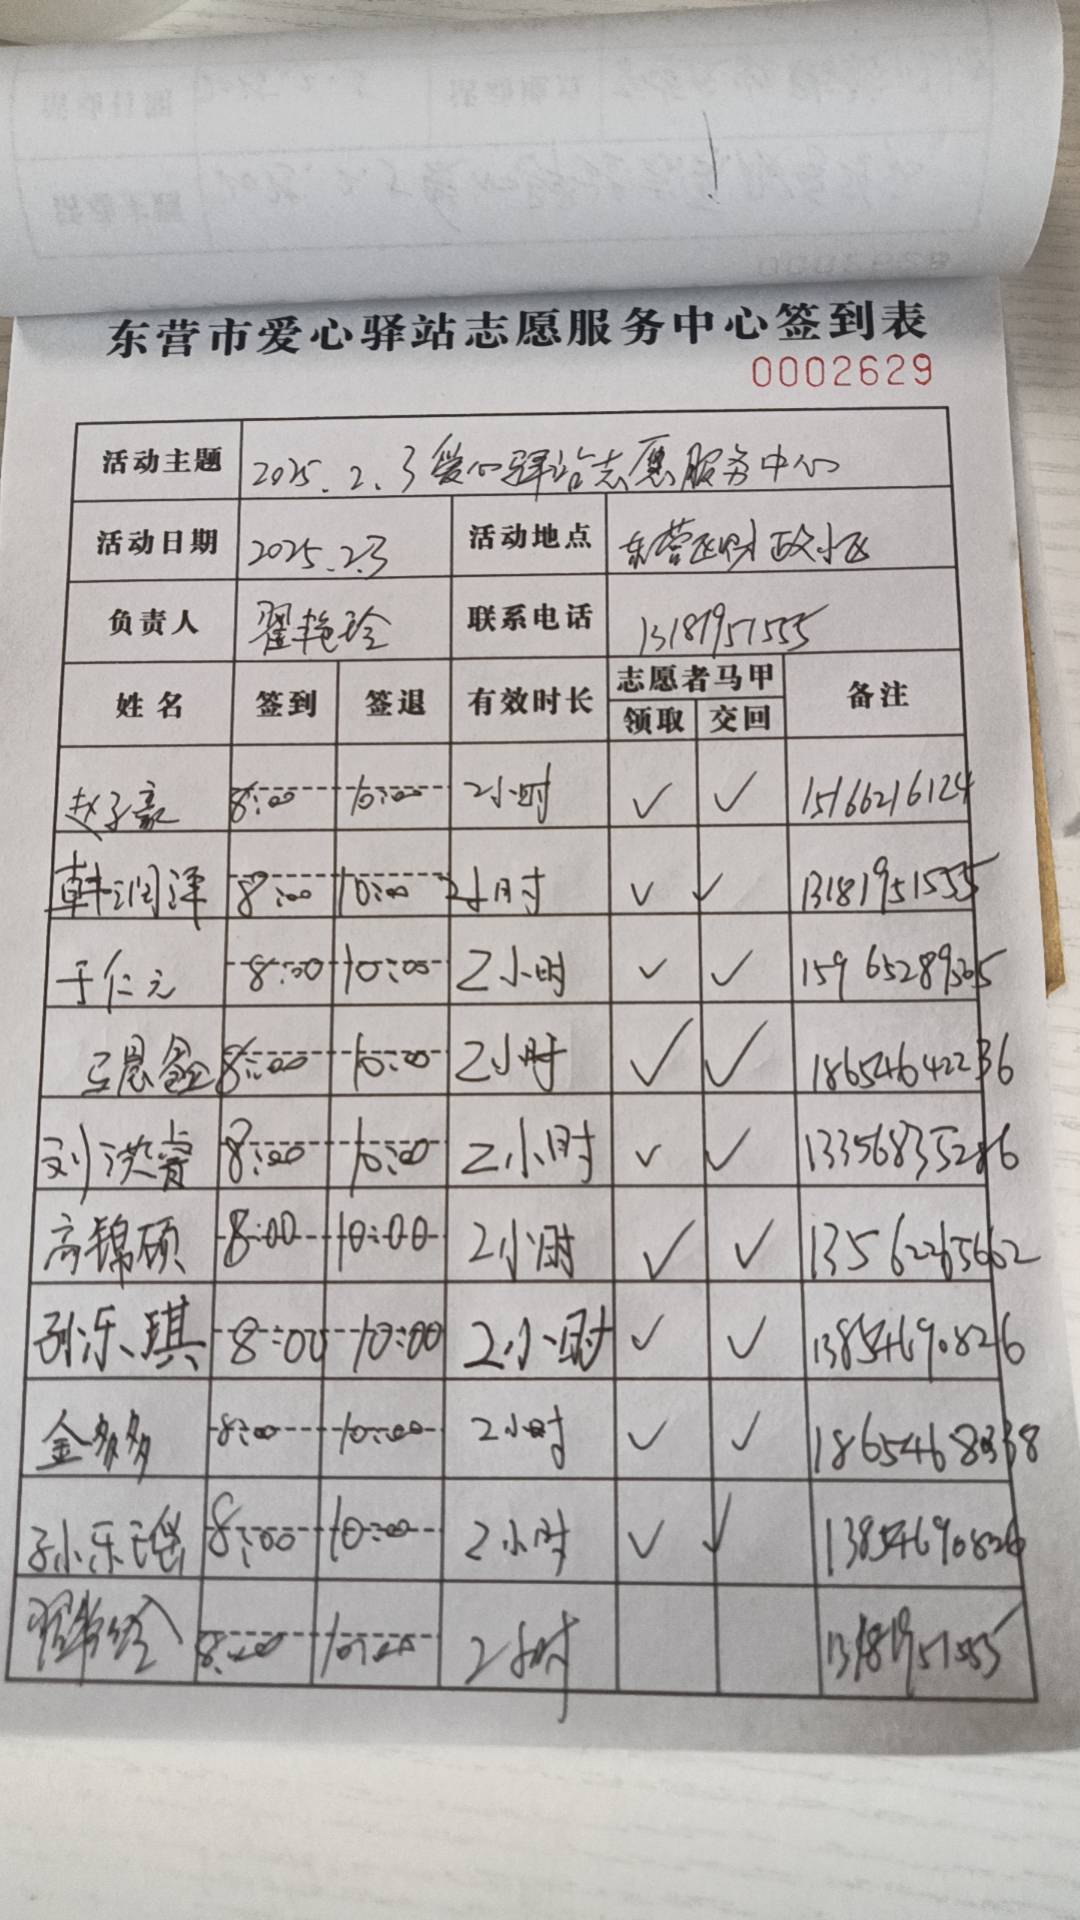 东营市爱心驿站志愿服务中心签到表
0002629
活动主题 2025.2.3爱心驿站志愿服务中心
活动日期 2025.2.3 活动地点 东营区财政小区
负责人 翟艳玲 联系电话 13181951555
姓名 签到 签退 有效时长 志愿者马甲 领取 交回 备注
赵子豪 8:00 10:00 2小时 ✓ ✓ 15166216124
韩润泽 8:00 10:00 2小时 ✓ ✓ 13181951555
于仁元 8:00 10:00 2小时 ✓ ✓ 15965289505
王恩鑫 8:00 10:00 2小时 ✓ ✓ 18654642236
刘洪睿 8:00 10:00 2小时 ✓ ✓
高锦硕 8:00 10:00 2小时 ✓ ✓ 13562265662
孙乐琪 8:00 10:00 2小时 ✓ ✓ 13854690826
金多多 8:00 10:00 2小时 ✓ ✓
孙乐瑶 8:00 10:00 2小时 ✓ ✓ 13854690826
翟艳玲 8:00 10:00 2小时 13181951555